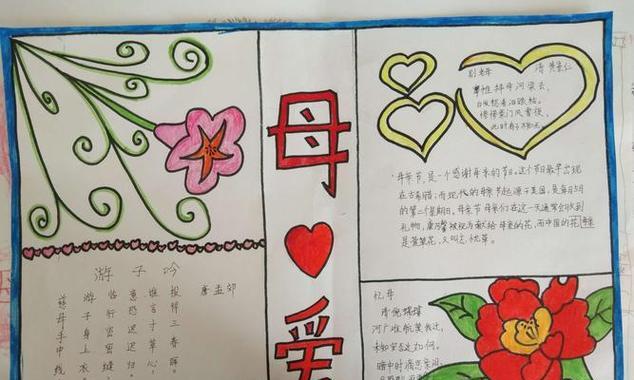 游子吟
唐 孟郊
慈母手中线
游子身上衣。
临行密密缝
意恐迟迟归。
谁言寸草心
报得三春晖。
母
爱
别老母 清 黄景仁
搴帷拜母河梁去,
白发愁看泪眼枯。
惨惨柴门风雪夜,
此时有子不如无。
母亲节,是一个感谢母亲的节日。这个节日最早出现
在古希腊;而现代的母亲节起源于美国,每年5月
的第二个星期日。母亲节母亲们在这一天通常会收到
礼物,康乃馨被视为献给母亲的花,而中国的花
是萱草花,又叫忘忧草。
忆母
清 倪瑞璿
河广难航莫我过,
未知安否近如何。
暗中时滴思亲泪,